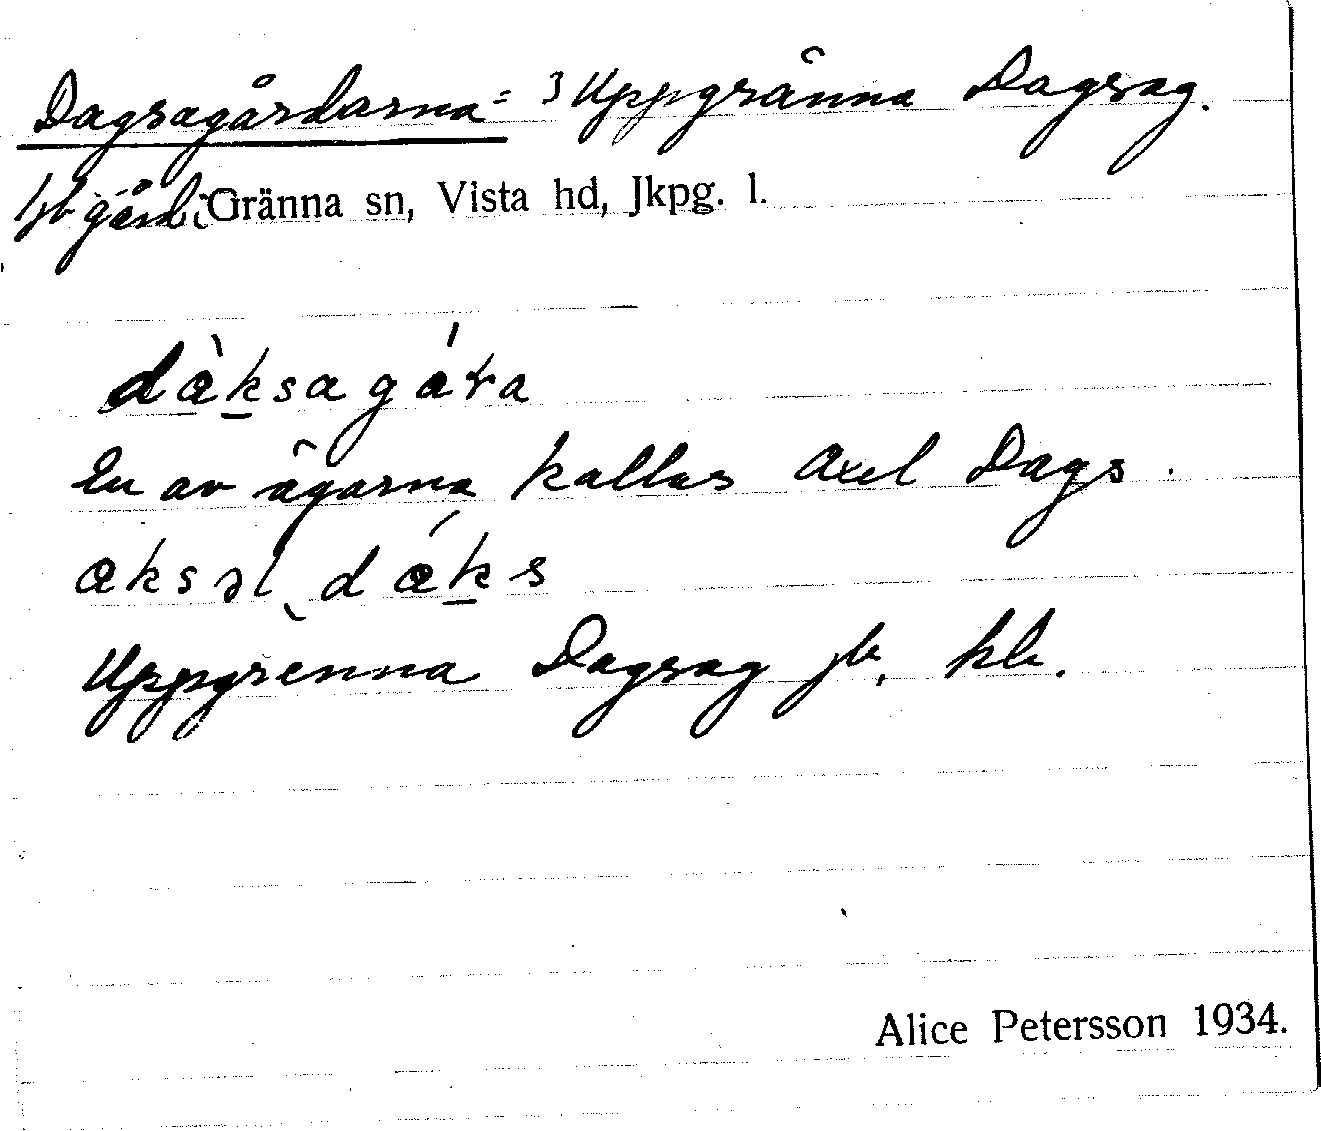 Dagsagårdarna = 3 Uppgränna Dagsag.
jb gård i Gränna sn, Vista hd, Jkpg. l.
dàksagára
En av ägarna kallas Axel Dags.
aksəl dáks
Uppgrenna Dagsag jb. kb.
Alice Petersson 1934.